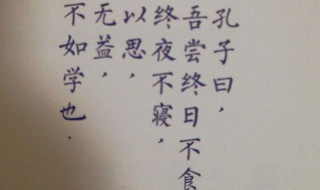 孔子曰，
吾尝终日不食
终夜不寝，
以思，
无益，
不如学也．